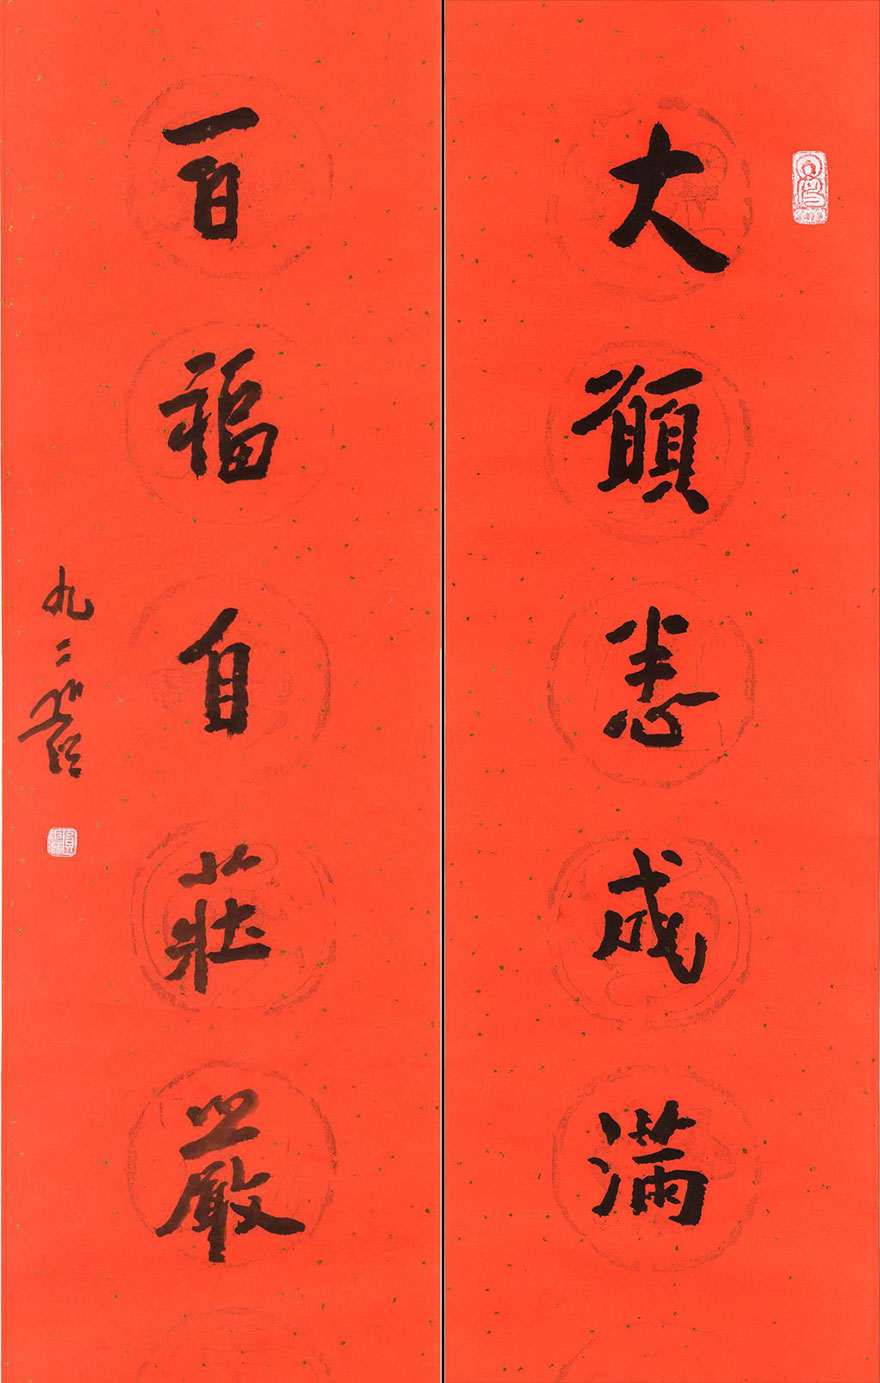 大願悉成滿
百福自莊嚴
九二